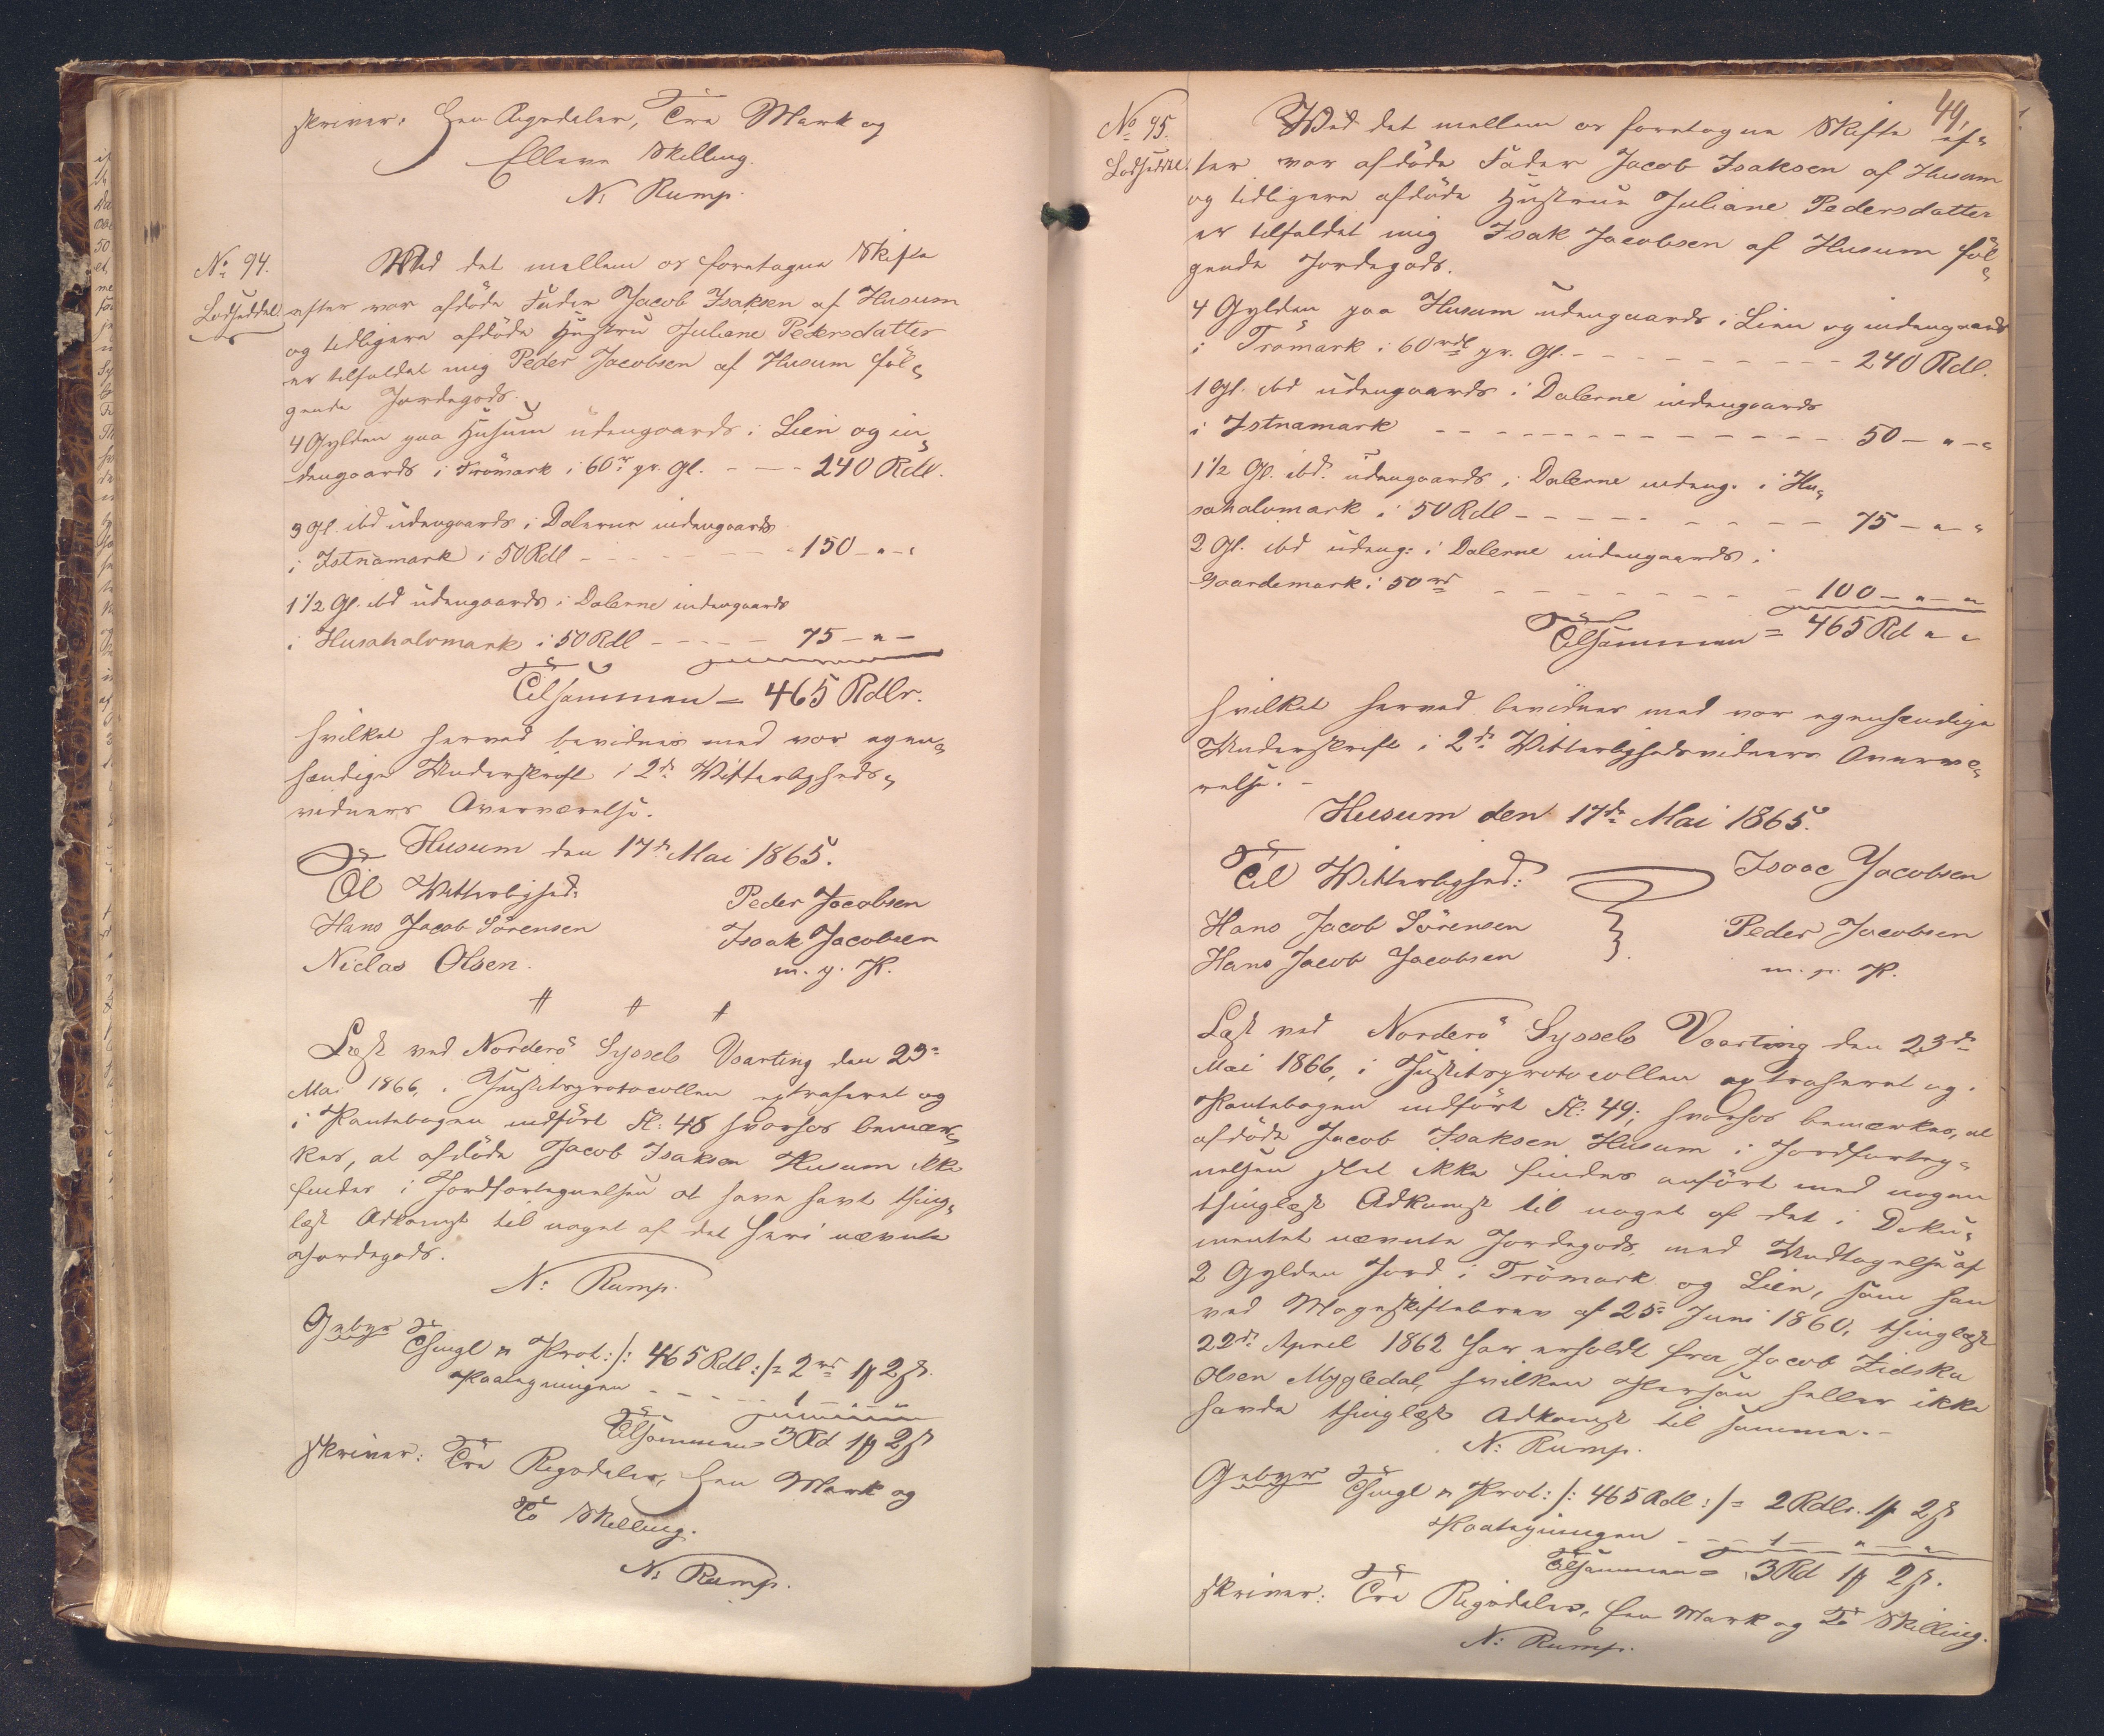 skriver: Een Rigsdaler, Tre Mark og
Elleve Skilling.
N. Rump.
No 94.
Lodseddel
Ved det mellem os foretagne Skifte
efter vor afdöde Fader Jacob Isaksen af Husum
og tidligere afdöde Hustru Juliane Pedersdatter
er tilfaldet mig Peder Jacobsen af Husum föl-
gende Jordegods.
4 Gylden paa Husum udengaards i Lien og in-
dengaards i Trömark i 60 rd pr. Gl. - - - 240 Rdl.
3 Gl. ibd udengaards i Dalerne indengaards
i Istnamark i 50 Rdl - - - - - 150 - " - "
1 1/2 Gl. ibd udengaards i Dalerne indengaards
i Husahalvmark i 50 Rdl - - - - 75 - " -
Tilsammen = 465 Rdlr.
hvilket herved bevidnes med vor egen-
hændige Underskrift i 2de Vitterligheds-
vidners Overværelse.
Husum den 17de Mai 1865.
Til Vitterlighed:
Peder Jacobsen
Hans Jacob Sörensen
Isaak Jacobsen
Niclas Olsen.
m. p. P.
Læst ved Norderö Syssels Vaarting den 23de
Mai 1866, i Justitsprotocollen extraheret og
i Pantebogen indfört Fl: 48 hvorhos bemær-
kes, at afdöde Jacob Isaksen Husum ikke
findes i Jordfortegnelsen at have havt thing-
læst Adkomst til noget af det heri nævnte
Jordegods.
N: Rump.
Gebyr
Thingl n Prot: /: 465 Rdl :/ = 2 rd 1 # 2 s.
Paategningen - - - - 1 " "
Tilsammen = 3 Rd 1 # 2 s
skriver: Tre Rigsdaler, Een Mark og
To Skilling.
N. Rump.
49.
No 95.
Lodseddel.
Ved det mellem os foretagne Skifte ef-
ter vor afdöde Fader Jacob Isaksen af Husum
og tidligere afdöde Hustrue Juliane Pedersdatter
er tilfaldet mig Isak Jacobsen af Husum föl-
gende Jordegods.
4 Gylden paa Husum udengaards i Lien og indengaards
i Trömark i 60 rdl pr. Gl. - - - - - - 240 Rdl.
1 Gl. ibd udengaards i Dalerne indengaards
i Istnamark - - - - - - - - 50 - " - "
1 1/2 Gl. ibd. udengaards i Dalerne indeng. i Hu-
sahalvmark i 50 Rdl - - - - - - 75 - " - "
2 Gl. ibd udeng: i Dalerne indengaards i
Gaardemark i 50 rd - - - - - - 100 - " - "
Tilsammen = 465 Rd " "
hvilket herved bevidnes med vor egenhændige
Underskrift i 2de Vitterlighedsvidners Overvæ-
relse. -
Husum den 17de Mai 1865.
Til Vitterlighed:
Isaac Jacobsen
Hans Jacob Sörensen
Peder Jacobsen
Hans Jacob Jacobsen
m. p. P.
Læst ved Norderö Syssels Vaarting den 23de
Mai 1866, i Justitsprotocollen extraheret og i
Pantebogen indfört Fl: 49; hvorhos bemærkes, at
afdöde Jacob Isaksen Husum i Jordforteg-
nelsen slet ikke findes anfört med nogen
thinglæst Adkomst til noget af det i Doku-
mentet nævnte Jordegods, med Undtagelse af
2 Gylden Jord i Trömark og Lien, som han
ved Mageskiftebrev af 25de Juni 1860, thinglæst
22de April 1862 har erholdt fra Jacob Zidska
Olsen Mygledal, hvilken Person heller ikke
havde thinglæst Adkomst til samme. -
N: Rump.
Gebyr
Thingl n Prot: /: 465 Rdl :/ = 2 Rdlr. 1 # 2 s
Paategningen - - - 1 - " - "
Tilsammen = 3 Rd 1 # 2 s.
skriver: Tre Rigsdaler, Een Mark og To Skilling.
N: Rump.